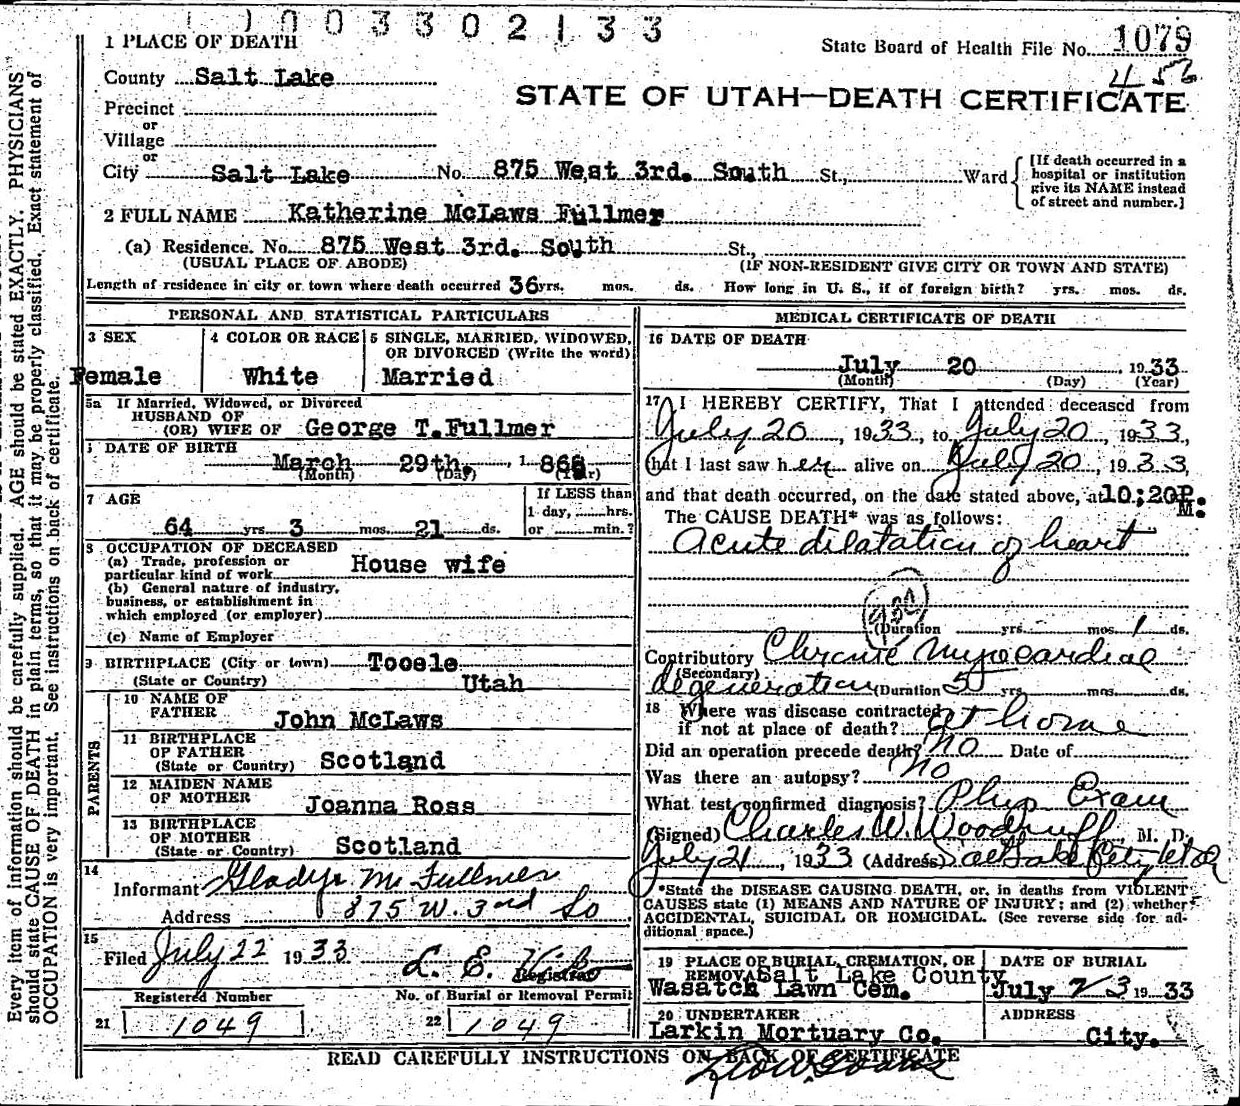 003302133
1 PLACE OF DEATH
State Board of Health File No. 1079
County Salt Lake
STATE OF UTAH—DEATH CERTIFICATE
Precinct
or
Village
or
City Salt Lake No. 875 West 3rd. South St., Ward
[If death occurred in a hospital or institution give its NAME instead of street and number.]
2 FULL NAME Katherine McLaws Fullmer
(a) Residence. No. 875 West 3rd. South St.,
(USUAL PLACE OF ABODE) (IF NON-RESIDENT GIVE CITY OR TOWN AND STATE)
Length of residence in city or town where death occurred 36 yrs. mos. ds. How long in U. S., if of foreign birth? yrs. mos. ds.
PERSONAL AND STATISTICAL PARTICULARS
3 SEX
Female
4 COLOR OR RACE
White
5 SINGLE, MARRIED, WIDOWED, OR DIVORCED (Write the word)
Married
5a If Married, Widowed, or Divorced
HUSBAND OF
(OR) WIFE OF George T.Fullmer
DATE OF BIRTH
March 29th.
(Month) (Day) (Year)
7 AGE
64 yrs 3 mos. 21 ds.
If LESS than
1 day, hrs.
or min.?
8 OCCUPATION OF DECEASED
(a) Trade, profession or
particular kind of work House wife
(b) General nature of industry,
business, or establishment in
which employed (or employer)
(c) Name of Employer
9 BIRTHPLACE (City or town) Tooele
(State or Country) Utah
PARENTS
10 NAME OF
FATHER
John McLaws
11 BIRTHPLACE
OF FATHER
(State or Country) Scotland
12 MAIDEN NAME
OF MOTHER Joanna Ross
13 BIRTHPLACE
OF MOTHER
(State or Country) Scotland
14
Informant Gladys M Fullmer
Address 875 W. 3rd So
15
Filed July 22 1933 L. E.
Registrar
Registered Number
21 1049
No. of Burial or Removal Permit
22 1049
MEDICAL CERTIFICATE OF DEATH
16 DATE OF DEATH
July 20 1933
(Month) (Day) (Year)
17 I HEREBY CERTIFY, That I attended deceased from
July 20, 1933, to July 20, 1933,
that I last saw her alive on July 20, 1933,
and that death occurred, on the date stated above, at 10:20P. M.
The CAUSE DEATH* was as follows:
Acute dilatation of heart
(Duration yrs. mos. 1 ds.
Contributory Chronic Myocardial
(Secondary)
degeneration (Duration 5 yrs mos. ds.
18 Where was disease contracted
if not at place of death? at home
Did an operation precede death? No Date of
Was there an autopsy? No
What test confirmed diagnosis? Phys Exam
(Signed) Charles W. Woodruff, M. D.
July 21, 1933 (Address) Salt Lake City Utah
*State the DISEASE CAUSING DEATH, or, in deaths from VIOLENT
CAUSES state (1) MEANS AND NATURE OF INJURY; and (2) whether
ACCIDENTAL, SUICIDAL OR HOMICIDAL. (See reverse side for ad-
ditional space.)
19 PLACE OF BURIAL, CREMATION, OR
REMOVAL Salt Lake County
Wasatch Lawn Cem.
DATE OF BURIAL
July 23 1933
20 UNDERTAKER
Larkin Mortuary Co.
ADDRESS
City.
READ CAREFULLY INSTRUCTIONS ON BACK OF CERTIFICATE
Every item of information should be carefully supplied. AGE should be stated EXACTLY. PHYSICIANS
should state CAUSE OF DEATH in plain terms, so that it may be properly classified. Exact statement of
OCCUPATION is very important. See instructions on back of certificate.